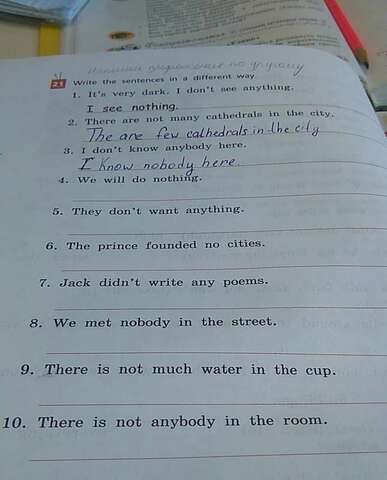 21 Write the sentences in a different way
1. It's very dark. I don't see anything.
I see nothing.
2. There are not many cathedrals in the city.
The are few cathedrals in the city
3. I don't know anybody here.
I know nobody here.
4. We will do nothing.
5. They don't want anything.
6. The prince founded no cities.
7. Jack didn't write any poems.
8. We met nobody in the street.
9. There is not much water in the cup.
10. There is not anybody in the room.